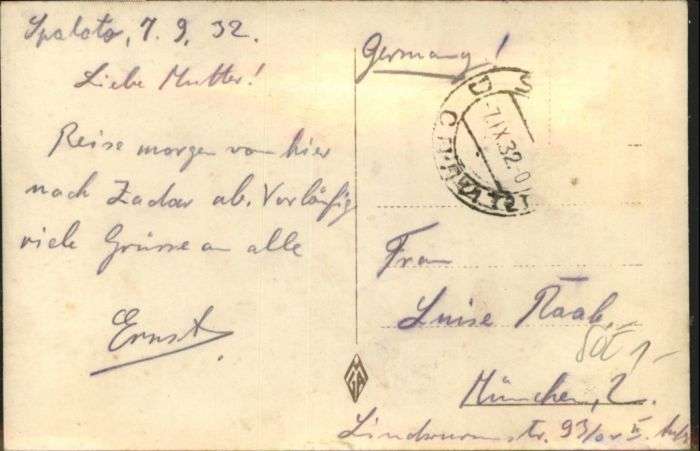 Spalato, 7. 9. 32.
Liebe Mutter!
Reise morgen von hier
nach Zadar ab. Vorläufig
viele Grüsse an alle
Ernst
Germany!
-7.IX.32.0
Frau
Luise Raab,
München, 2.
Lindwurmstr. 93/0r II.